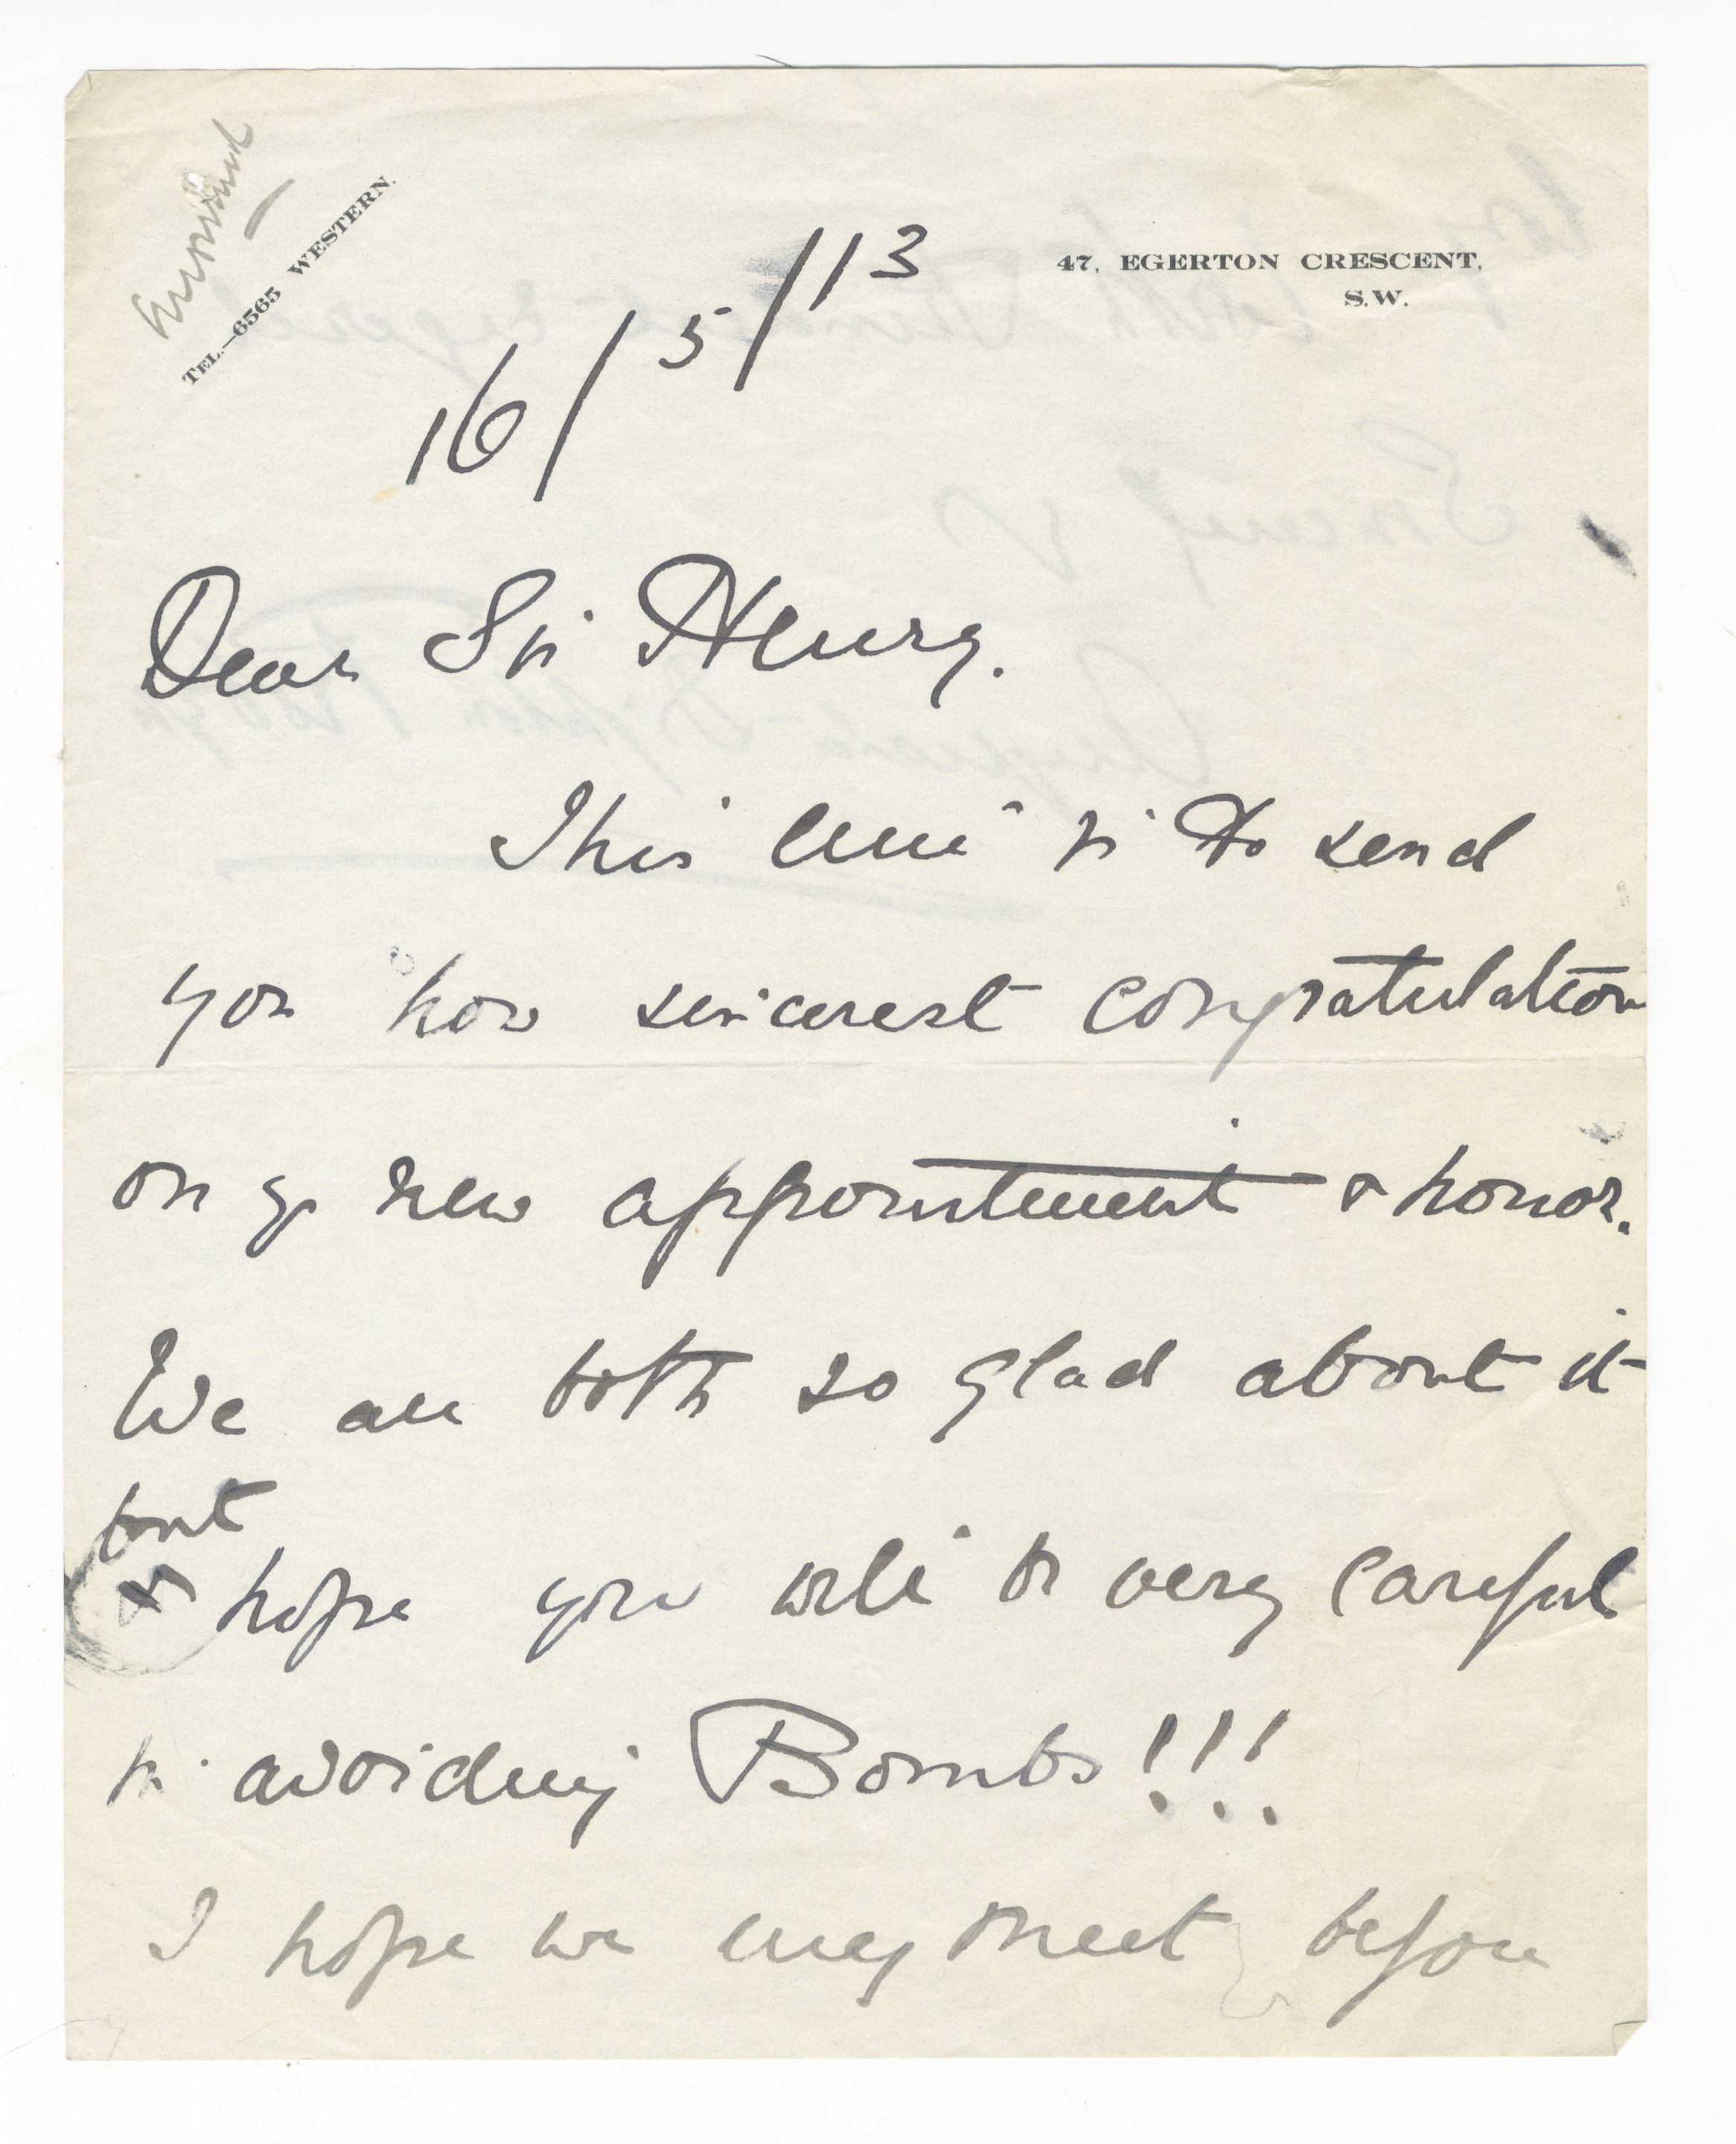 TEL.—6565 WESTERN.
47, EGERTON CRESCENT,
S.W.
16/5/13
Dear Sir Henry.
This line is to send
you how sincerest congratulation
on yr new appointment & honor.
We are both so glad about it
but
hope you will be very careful
in avoiding Bombs!!!
I hope we may meet before